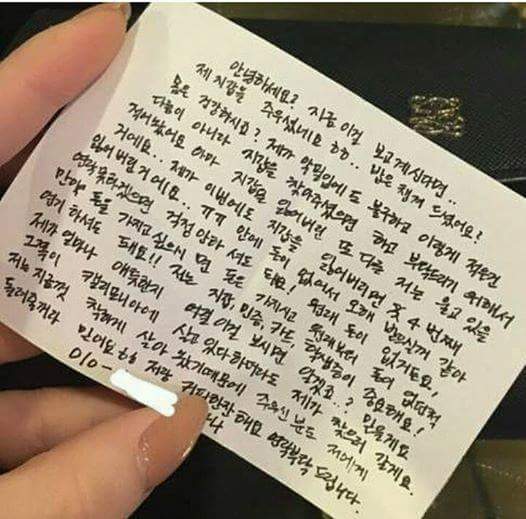 안녕하세요? 지금 이걸 보고계신다면..
제 지갑을 주우셨네요 ㅎㅎ.. 밥은 챙겨 드셨어요?
몸은 건강하시죠? 제가 악필임에도 불구하고 이렇게 적은건
다름이 아니라 지갑을 찾아주셨으면 하고 부탁드리기 위해서
적어놨어요 아마 지갑을 잃어버린 또 다른 저는 울고 있을
거에요.. 제가 이번에도 지갑을 잃어버리면 4번째
잃어버린거에요.. ㅠㅠ 안에 돈이 없어서 오해 받으실거 같아
연락못하겠다면 걱정 않아 셔도 돼요! 원래 돈이 없거든요,
만약 돈을 가지고싶으시면 돈은 가지시고 원래부터 돈이 없던척
연기 하셔도 돼요!! 저는 지갑, 민증, 카드, 학생증이 중요해요!
제가 얼마나 애틋한지 이걸 보시면 알겠죠..?
그쪽이 캘리포니아에 살고있다 하더라도 제가 찾으러 갈게요.
저는 지금껏 착하게 살아 왔기때문에 주우신 분도 저에게
돌려줄거라 믿어요 ㅎㅎ 저랑 커피한잔해요 연락부탁 드립니다.
010-